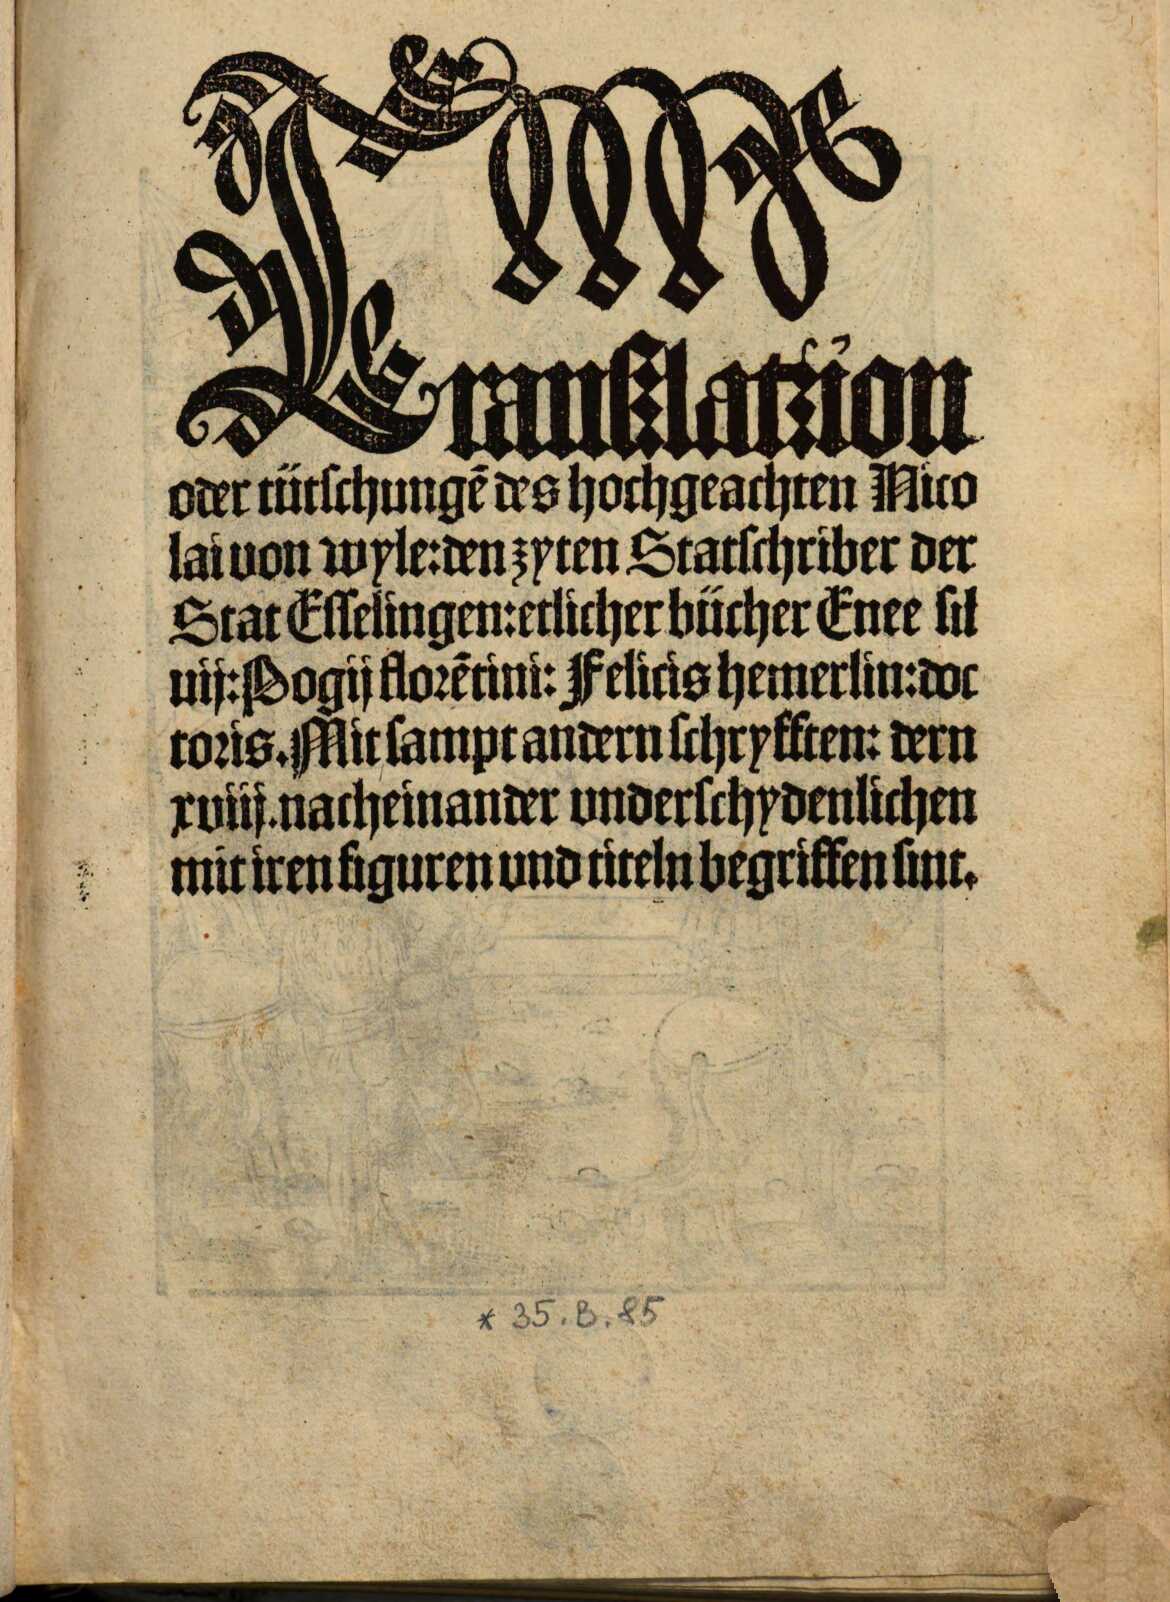 Translatzion
oder tütschungē des hochgeachten Nico
lai von wyle: den zyten Statschriber der
Stat Esselingen: etlicher bücher Enee sil
uij: Pogij florētini: Felicis hemerlin: doc
toris. Mit sampt andern schryfften: dern
xviij. nach einander underschydenlichen
mit iren figuren und titeln begriffen sint.
* 35. B. 85